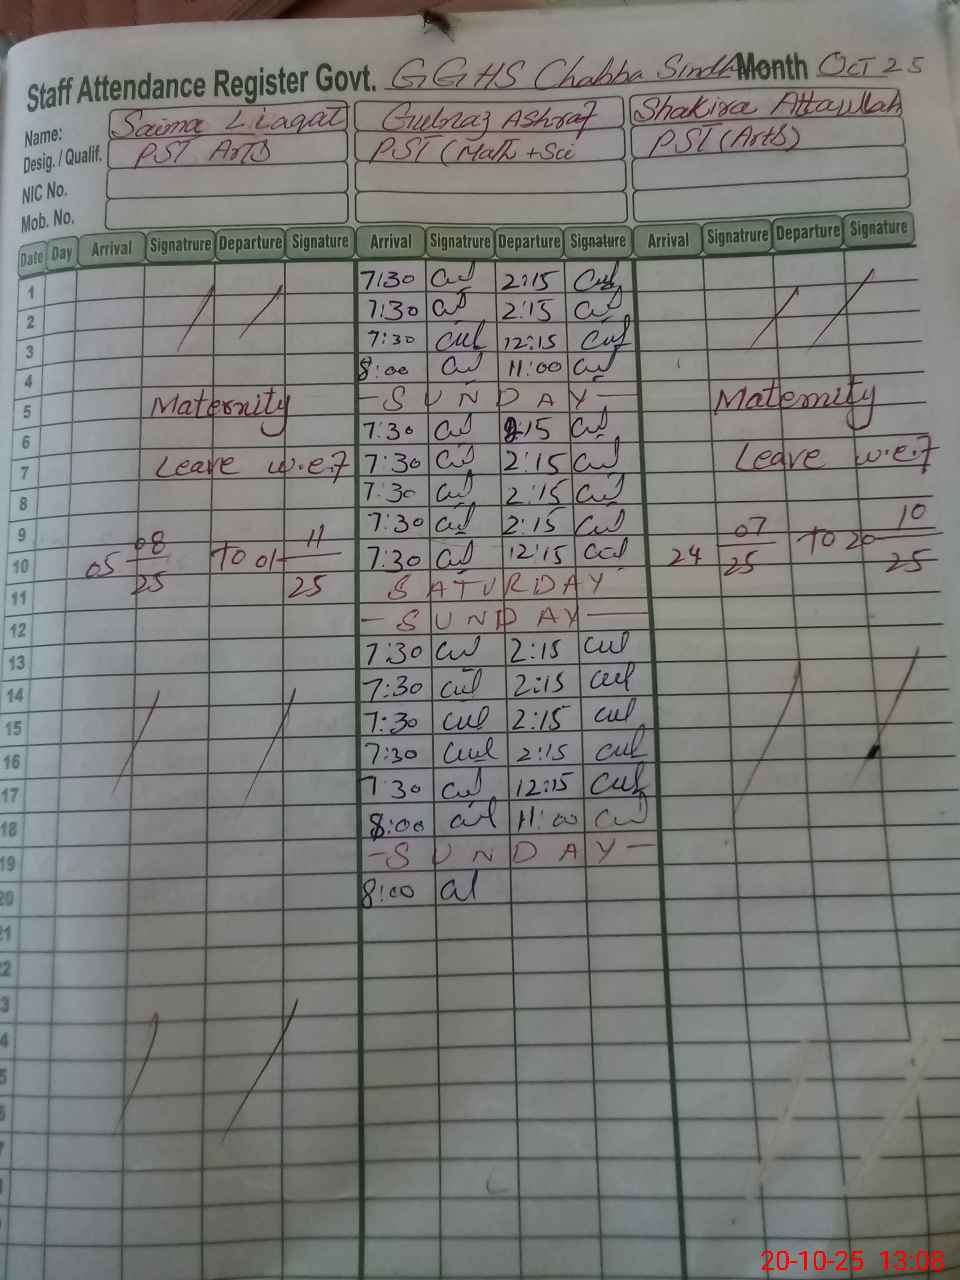 Staff Attendance Register Govt. GGHS Chabba Sindh Month Oct 25
Name: Saima Liaqat Gulnaz Ashraf Shakira Attaullah
Desig. / Qualif. PST Arts PST (Math + Sci PST (Arts)
NIC No.
Mob. No.
Date Day Arrival Signatrure Departure Signature Arrival Signatrure Departure Signature Arrival Signatrure Departure Signature
1 7:30 2:15
2 7:30 2:15
3 7:30 12:15
4 8:00 11:00
5 Maternity SUNDAY Maternity
6 7:30 2:15
7 Leave w.e.f 7:30 2:15 Leave w.e.f
8 7:30 2:15
9 7:30 2:15
10 05 08/25 To 01 11/25 7:30 12:15 24 07/25 To 20 10/25
11 SATURDAY
12 SUNDAY
13 7:30 2:15
14 7:30 2:15
15 7:30 2:15
16 7:30 2:15
17 7:30 12:15
18 8:00 11:00
19 SUNDAY
20 8:00
21
2
3
4
5
6
7
20-10-25 13:08